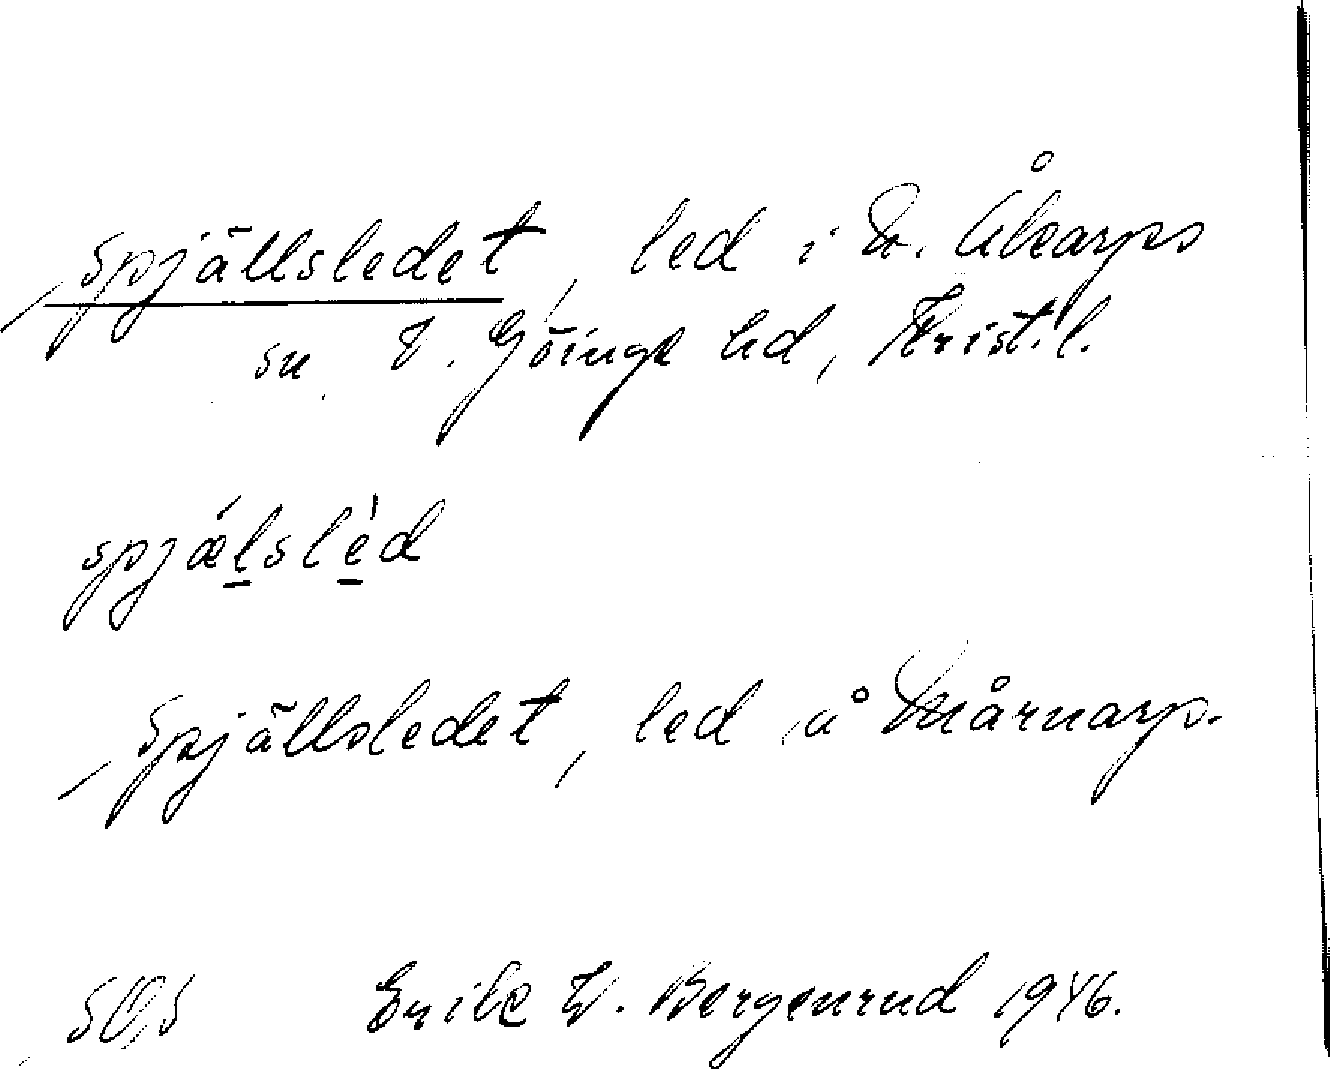 Spjällsledet, led i N. Åkarps
sn V. Göinge hd, Krist. l.
spjǽlslèd
Spjällsledet, led å Mårnarp.
Erik W. Bergenrud 1946.